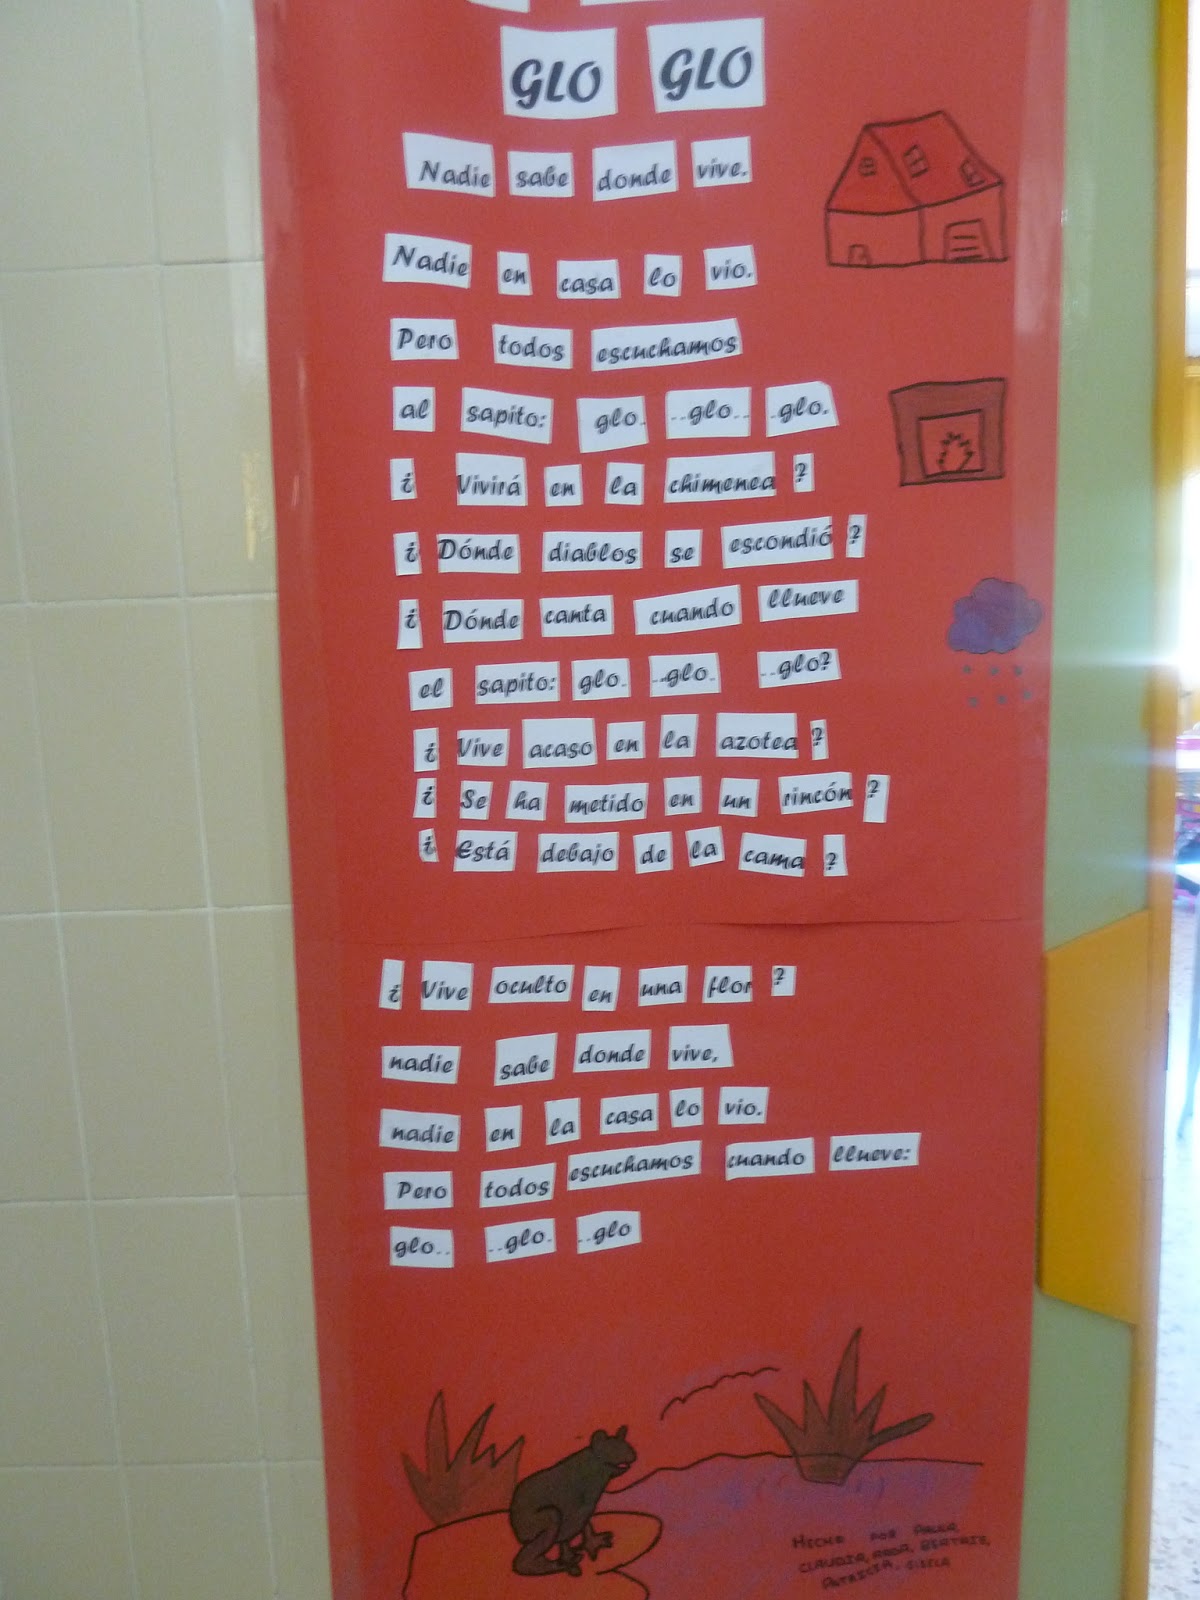 GLO GLO
Nadie sabe donde vive.
Nadie en casa lo vio.
Pero todos escuchamos
al sapito: glo. ..glo.. .glo.
¿ Vivirá en la chimenea ?
¿ Dónde diablos se escondió ?
¿ Dónde canta cuando llueve
el sapito: glo. ..glo. ..glo?
¿ Vive acaso en la azotea ?
¿ Se ha metido en un rincón ?
¿ Está debajo de la cama ?
¿ Vive oculto en una flor ?
nadie sabe donde vive,
nadie en la casa lo vio.
Pero todos escuchamos cuando llueve:
glo.. ..glo. ..glo
HECHO POR PAULA,
CLAUDIA, BEATRIZ,
PATRICIA, GISELA